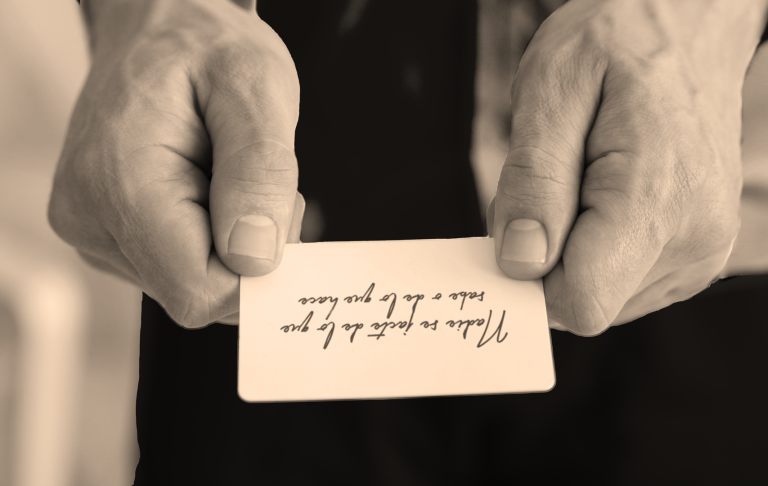 Nadie se jacte de lo que
sabe o de lo que hace